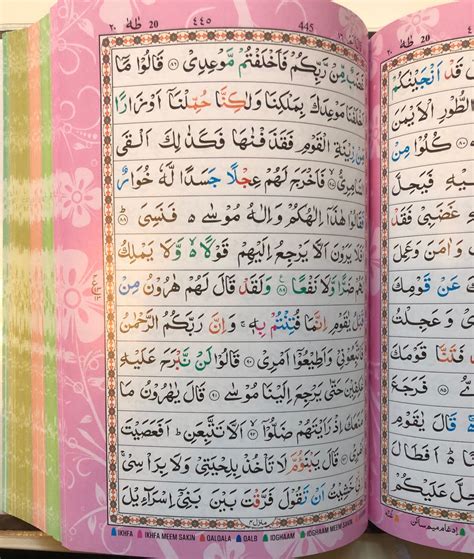 ٢٠ طٰهٰ 20
٤٤٥
445
غَضَبٌ مِّنْ رَّبِّكُمْ فَاَخْلَفْتُمْ مَّوْعِدِىْ ﴿۸۶﴾ قَالُوْا مَاۤ
اَخْلَفْنَا مَوْعِدَكَ بِمَلْكِنَا وَلٰكِنَّا حُمِّلْنَاۤ اَوْزَارًا
مِّنْ زِيْنَةِ الْقَوْمِ فَقَذَفْنٰهَا فَكَذٰلِكَ اَلْقَى
السَّامِرِىُّ ﴿۸۷﴾ فَاَخْرَجَ لَهُمْ عِجْلًا جَسَدًا لَّهٗ خُوَارٌ
فَقَالُوْا هٰذَاۤ اِلٰهُكُمْ وَاِلٰهُ مُوْسٰى ە فَنَسِىَ ﴿۸۸﴾
اَفَلَا يَرَوْنَ اَلَّا يَرْجِعُ اِلَيْهِمْ قَوْلًا ە وَّلَا يَمْلِكُ
لَهُمْ ضَرًّا وَّلَا نَفْعًا ﴿۸۹﴾ وَلَقَدْ قَالَ لَهُمْ هٰرُوْنُ مِنْ
قَبْلُ يٰقَوْمِ اِنَّمَا فُتِنْتُمْ بِهٖ ۚ وَاِنَّ رَبَّكُمُ الرَّحْمٰنُ
فَاتَّبِعُوْنِىْ وَاَطِيْعُوْۤا اَمْرِىْ ﴿۹۰﴾ قَالُوْا لَنْ نَّبْرَحَ عَلَيْهِ
حَتّٰى يَرْجِعَ اِلَيْنَا مُوْسٰى ﴿۹۱﴾ قَالَ يٰهٰرُوْنُ مَا
اِذْ رَاَيْتَهُمْ ضَلُّوْۤا ﴿۹۲﴾ اَلَّا تَتَّبِعَنِ ؕ اَفَعَصَيْتَ
قَالَ يَبْنَؤُمَّ لَا تَاْخُذْ بِلِحْيَتِىْ وَلَا بِرَاْسِىْ ۚ
خَشِيْتُ اَنْ تَقُوْلَ فَرَّقْتَ بَيْنَ بَنِىْۤ اِسْرَآءِيْلَ
منزل ٤
IKHFA IKHFA MEEM SAKIN QALQALA QALB IDGHAAM IDGHAAM MEEM SAKIN
٢٠ طٰهٰ 20
قَدْ اَنْجَيْنٰكُمْ
الطُّوْرِ الْاَيْمَنَ
كُلُوْا مِنْ
فِيْهِ فَيَحِلَّ
غَضَبِىْ فَقَدْ
وَاٰمَنَ وَعَمِلَ
عَنْ قَوْمِكَ
وَعَجِلْتُ
فَتَنَّا قَوْمَكَ
فَرَجَعَ
قَالَ يٰقَوْمِ
اَفَطَالَ
عَلَيْكُمْ
ادغام میم ساکن